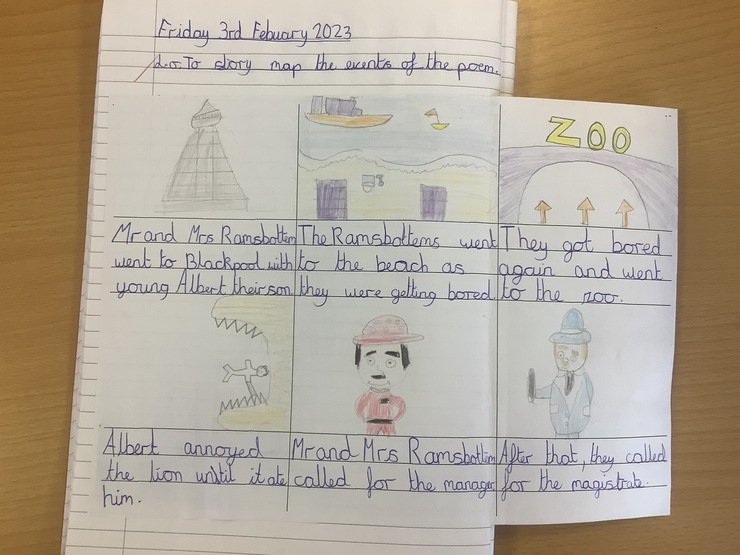 Friday 3rd Febuary 2023
L.o. To story map the events of the poem.
ZOO
Mr and Mrs Ramsbottem
went to Blackpool with
young Albert their son
The Ramsbottems went
to the beach as
they were getting bored
They got bored
again and went
to the zoo.
Albert annoyed
the lion until it ate
him.
Mr and Mrs Ramsbottem
called for the manager
After that, they called
for the magistrate.